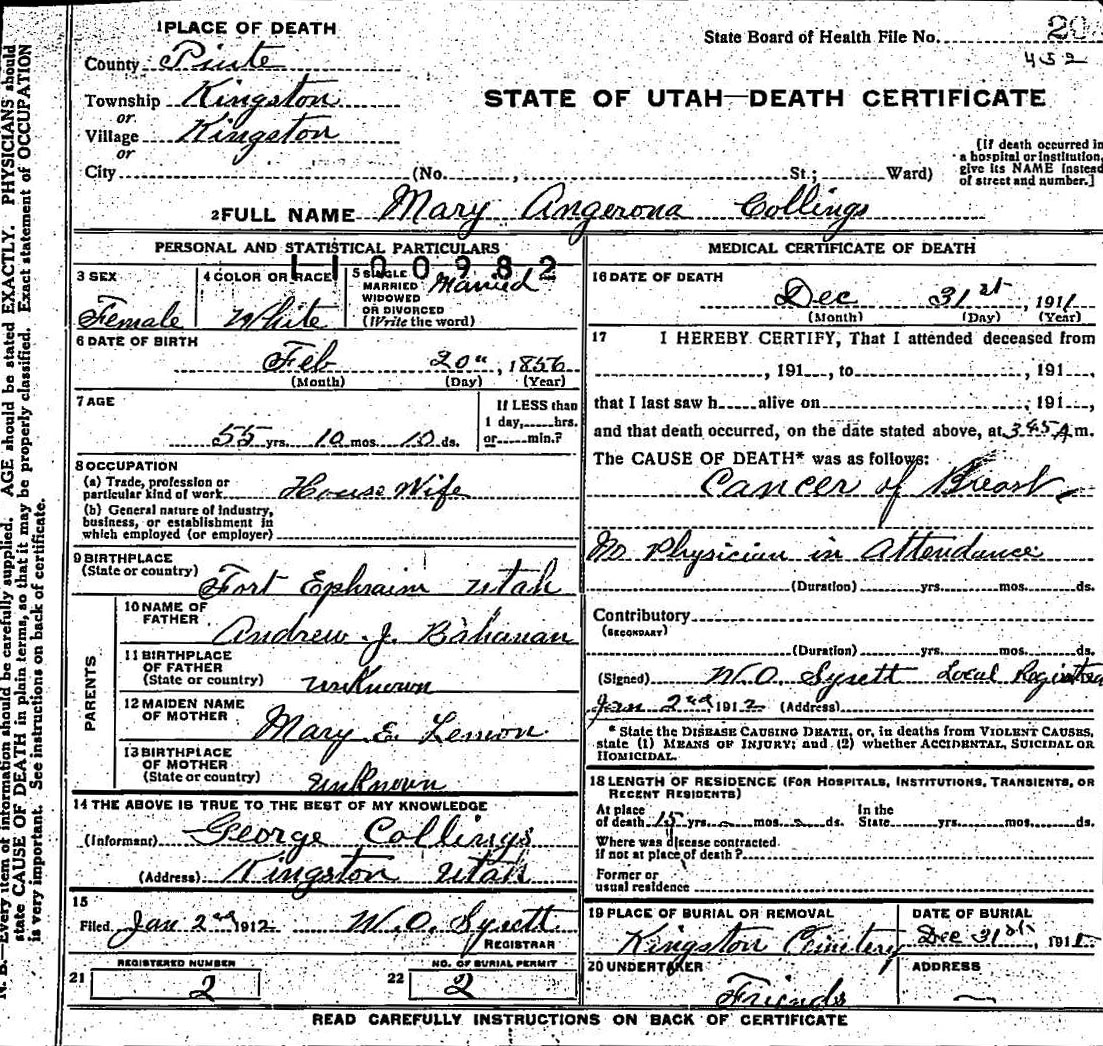 1 PLACE OF DEATH
County Piute
Township Kingston
or
Village Kingston
or
City (No. , St.; Ward)
State Board of Health File No. 20
452
STATE OF UTAH—DEATH CERTIFICATE
[If death occurred in
a hospital or institution,
give its NAME instead
of street and number.]
2 FULL NAME Mary Angerona Collings
PERSONAL AND STATISTICAL PARTICULARS
1100982
3 SEX
Female
4 COLOR OR RACE
White
5 SINGLE
MARRIED
WIDOWED
OR DIVORCED
(Write the word)
Married
6 DATE OF BIRTH
Feb 20th, 1856
(Month) (Day) (Year)
7 AGE
55 yrs. 10 mos. 10 ds.
If LESS than
1 day, hrs.
or min.?
8 OCCUPATION
(a) Trade, profession or
particular kind of work House Wife
(b) General nature of industry,
business, or establishment in
which employed (or employer)
9 BIRTHPLACE
(State or country)
Fort Ephraim Utah
PARENTS
10 NAME OF
FATHER
Andrew J. Bshanan
11 BIRTHPLACE
OF FATHER
(State or country)
unKnown
12 MAIDEN NAME
OF MOTHER
Mary E. Lemon
13 BIRTHPLACE
OF MOTHER
(State or country)
unKnown
14 THE ABOVE IS TRUE TO THE BEST OF MY KNOWLEDGE
(Informant) George Collings
(Address) Kingston Utah
15
Filed Jan 2nd 1912 W.O. Syrett
REGISTRAR
REGISTERED NUMBER
21 2
NO. OF BURIAL PERMIT
22 2
MEDICAL CERTIFICATE OF DEATH
16 DATE OF DEATH
Dec 31st, 1911
(Month) (Day) (Year)
17 I HEREBY CERTIFY, That I attended deceased from
, 191 , to , 191 ,
that I last saw h alive on , 191 ,
and that death occurred, on the date stated above, at 3:45 A m.
The CAUSE OF DEATH* was as follows:
Cancer of Breast
No Physician in Attendance
(Duration) yrs. mos. ds.
Contributory
(SECONDARY)
(Duration) yrs. mos. ds.
(Signed) W.O. Syrett Local Registrar
Jan 2nd 1912 (Address)
* State the DISEASE CAUSING DEATH, or, in deaths from VIOLENT CAUSES,
state (1) MEANS OF INJURY; and (2) whether ACCIDENTAL, SUICIDAL OR
HOMICIDAL.
18 LENGTH OF RESIDENCE (FOR HOSPITALS, INSTITUTIONS, TRANSIENTS, OR
RECENT RESIDENTS)
At place
of death 15 yrs. mos. ds.
In the
State yrs. mos. ds.
Where was disease contracted
if not at place of death?
Former or
usual residence
19 PLACE OF BURIAL OR REMOVAL
Kingston Cemetery
DATE OF BURIAL
Dec 31st, 1911
20 UNDERTAKER
Friends
ADDRESS
READ CAREFULLY INSTRUCTIONS ON BACK OF CERTIFICATE
N. B.—Every item of information should be carefully supplied. AGE should be stated EXACTLY. PHYSICIANS should
state CAUSE OF DEATH in plain terms, so that it may be properly classified. Exact statement of OCCUPATION
is very important. See instructions on back of certificate.